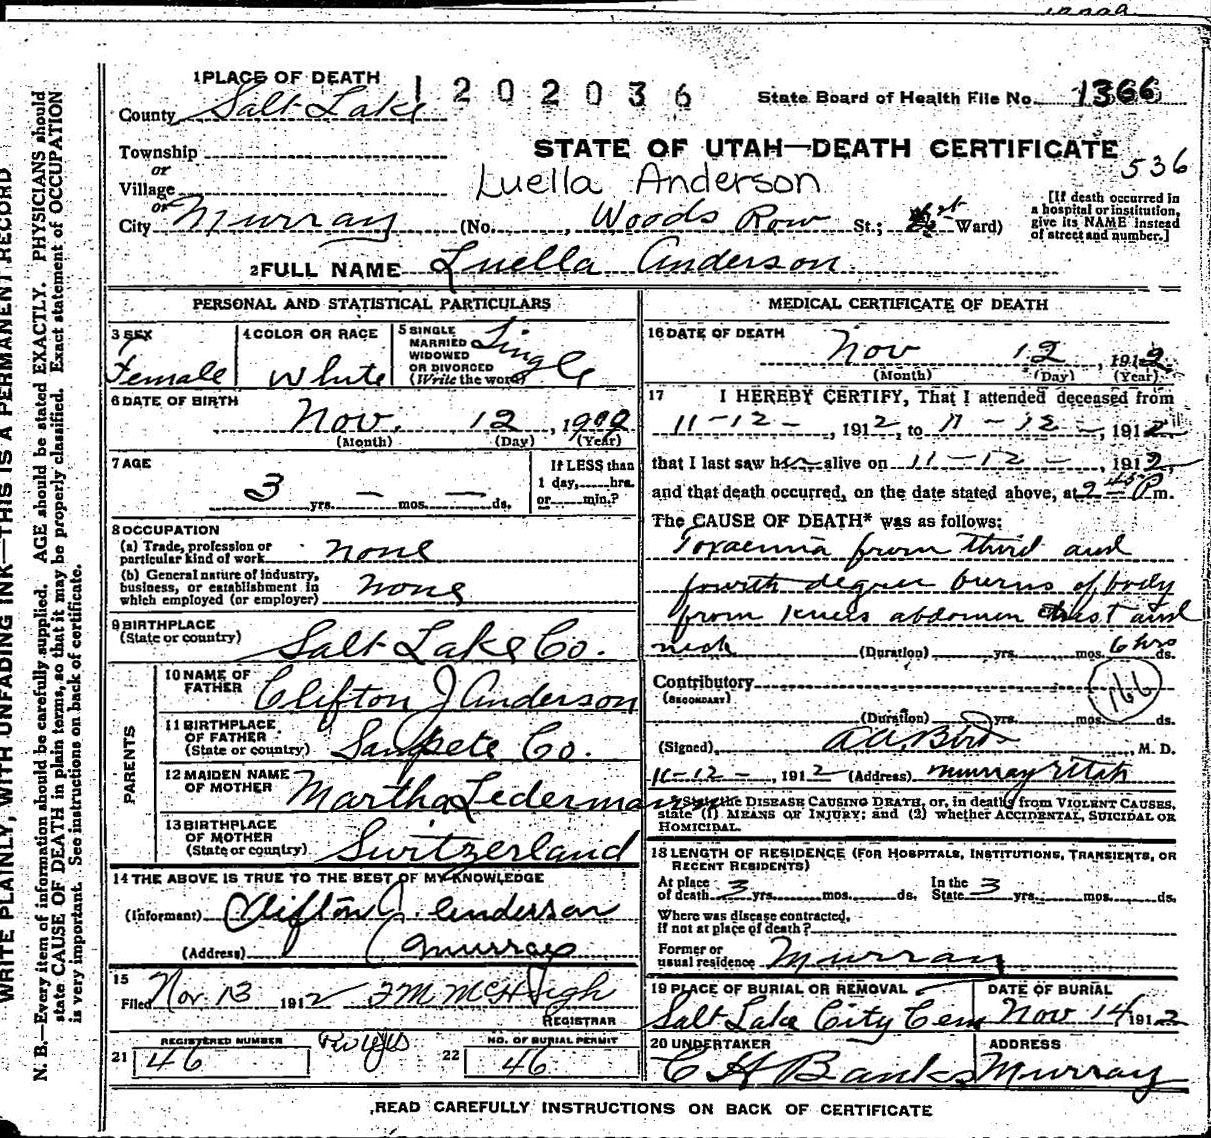 1 PLACE OF DEATH
1202036
State Board of Health File No. 1366
County Salt Lake
STATE OF UTAH—DEATH CERTIFICATE
536
Township
or
Village
Luella Anderson
or
City Murray (No. , Woods Row St.; Ward)
[If death occurred in
a hospital or institution,
give its NAME instead
of street and number.]
2 FULL NAME Luella Anderson
PERSONAL AND STATISTICAL PARTICULARS
3 SEX
Female
4 COLOR OR RACE
White
5 SINGLE
MARRIED
WIDOWED
OR DIVORCED
(Write the word)
Single
6 DATE OF BIRTH
Nov. 12, 1909
(Month) (Day) (Year)
7 AGE
3 yrs. — mos. — ds.
If LESS than
1 day, hrs.
or min.?
8 OCCUPATION
(a) Trade, profession or
particular kind of work none
(b) General nature of industry,
business, or establishment in
which employed (or employer) none
9 BIRTHPLACE
(State or country) Salt Lake Co.
PARENTS
10 NAME OF
FATHER Clifton J Anderson
11 BIRTHPLACE
OF FATHER
(State or country) Sanpete Co.
12 MAIDEN NAME
OF MOTHER Martha Ledermann
13 BIRTHPLACE
OF MOTHER
(State or country) Switzerland
14 THE ABOVE IS TRUE TO THE BEST OF MY KNOWLEDGE
(Informant) Clifton J. Anderson
(Address) Murray
15
Filed Nov 13 1912 F M McHugh
REGISTRAR
REGISTERED NUMBER
21 46
NO. OF BURIAL PERMIT
22 46
MEDICAL CERTIFICATE OF DEATH
16 DATE OF DEATH
Nov 12, 1912
(Month) (Day) (Year)
17 I HEREBY CERTIFY, That I attended deceased from
11-12-, 1912, to 11-12-, 1912
that I last saw her alive on 11-12-, 1912,
and that death occurred, on the date stated above, at 9 45 P m.
The CAUSE OF DEATH* was as follows:
Toxaemia from third and
fourth degree burns of body
from knees abdomen chest and
neck (Duration) yrs. mos. 6 hrs ds.
Contributory
(SECONDARY)
166
(Duration) yrs. mos. ds.
(Signed) A.A. Bird, M. D.
11-12-, 1912 (Address) Murray Utah
*State the DISEASE CAUSING DEATH, or, in deaths from VIOLENT CAUSES,
state (1) MEANS OF INJURY; and (2) whether ACCIDENTAL, SUICIDAL OR
HOMICIDAL.
18 LENGTH OF RESIDENCE (FOR HOSPITALS, INSTITUTIONS, TRANSIENTS, OR
RECENT RESIDENTS)
At place
of death 3 yrs. mos. ds. In the
State 3 yrs. mos. ds.
Where was disease contracted,
if not at place of death?
Former or
usual residence Murray
19 PLACE OF BURIAL OR REMOVAL
Salt Lake City Cem
DATE OF BURIAL
Nov 14 1912
20 UNDERTAKER
C H Banks
ADDRESS
Murray
READ CAREFULLY INSTRUCTIONS ON BACK OF CERTIFICATE
WRITE PLAINLY, WITH UNFADING INK—THIS IS A PERMANENT RECORD
N. B.—Every item of information should be carefully supplied. AGE should be stated EXACTLY. PHYSICIANS should
state CAUSE OF DEATH in plain terms, so that it may be properly classified. Exact statement of OCCUPATION
is very important. See instructions on back of certificate.